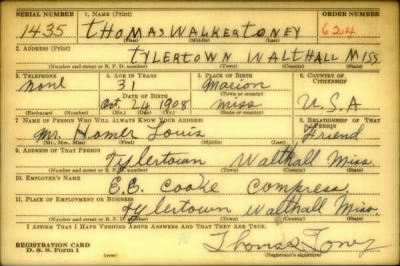 SERIAL NUMBER 1. NAME (Print) ORDER NUMBER
1435 THOMAS WALKER TONEY 624
(First) (Middle) (Last)
2. ADDRESS (Print)
TYLERTOWN WALTHALL MISS.
(Number and street or R. F. D. number) (Town) (County) (State)
3. TELEPHONE 4. AGE IN YEARS 5. PLACE OF BIRTH 6. COUNTRY OF CITIZENSHIP
None 31 Marion
DATE OF BIRTH (Town or county)
Oct. 24 1908 Miss U.S.A
(Exchange) (Number) (Mo.) (Day) (Yr.) (State or country)
7. NAME OF PERSON WHO WILL ALWAYS KNOW YOUR ADDRESS 8. RELATIONSHIP OF THAT PERSON
Mr. Homer Louis Friend
(Mr., Mrs., Miss) (First) (Middle) (Last)
9. ADDRESS OF THAT PERSON
Tylertown Walthall Miss.
(Number and street or R. F. D. number) (Town) (County) (State)
10. EMPLOYER'S NAME
E.E. Cooke Compress
11. PLACE OF EMPLOYMENT OR BUSINESS
Tylertown Walthall Miss.
(Number and street or R. F. D. number) (Town) (County) (State)
I AFFIRM THAT I HAVE VERIFIED ABOVE ANSWERS AND THAT THEY ARE TRUE.
REGISTRATION CARD
D. S. S. Form 1 Thomas Toney
(Registrant's signature)